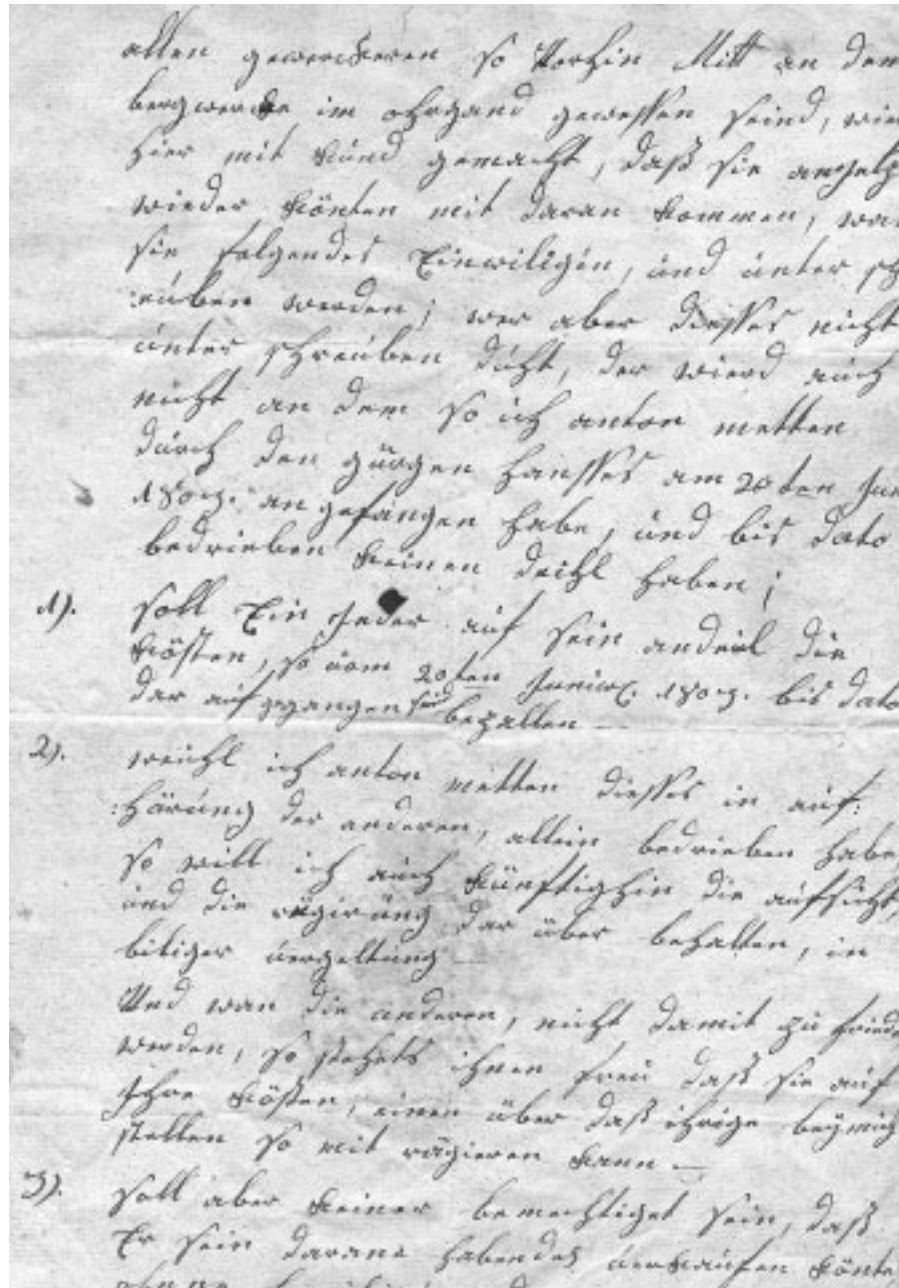 allen gewerckeren so Vorhin Mitt an dem
bergwercke im ohrgand gewessen seind, wir
hier mit kund gemacht, daß sie anjetz
wieder könten mit daran kommen, wan
sie folgendes Einwiligen, und unter sch
reiben werden; wer aber diesses nicht
unter schreiben duht, der wierd auch
nicht an dem so ich anton metten
durch den gürgen Hansses am 20ten Jun
1809. angefangen habe, und bis dato
bedrieben keinen deihl haben;
1). soll Ein Jeder auf sein andeil die
kösten, so vom 20ten Juni 1809. bis dato
dar aufgegangen sind bezallen
2). weihl ich anton metten diesses in auf:
:hörung der anderen, allein bedrieben habe
so will ich auch künftighin die aufsicht,
und die rägirung dar über behalten, in
biliger vergeltung
Und wan die anderen, nicht damit zu friede
werden, so stehets ihnen freu daß sie auf
Ihre kösten, einen über daß ihrige beymich
stellen so mit rägieren kann
3). soll aber keiner bemechtiget sein, daß
Er sein darane habendes verkaufen könte